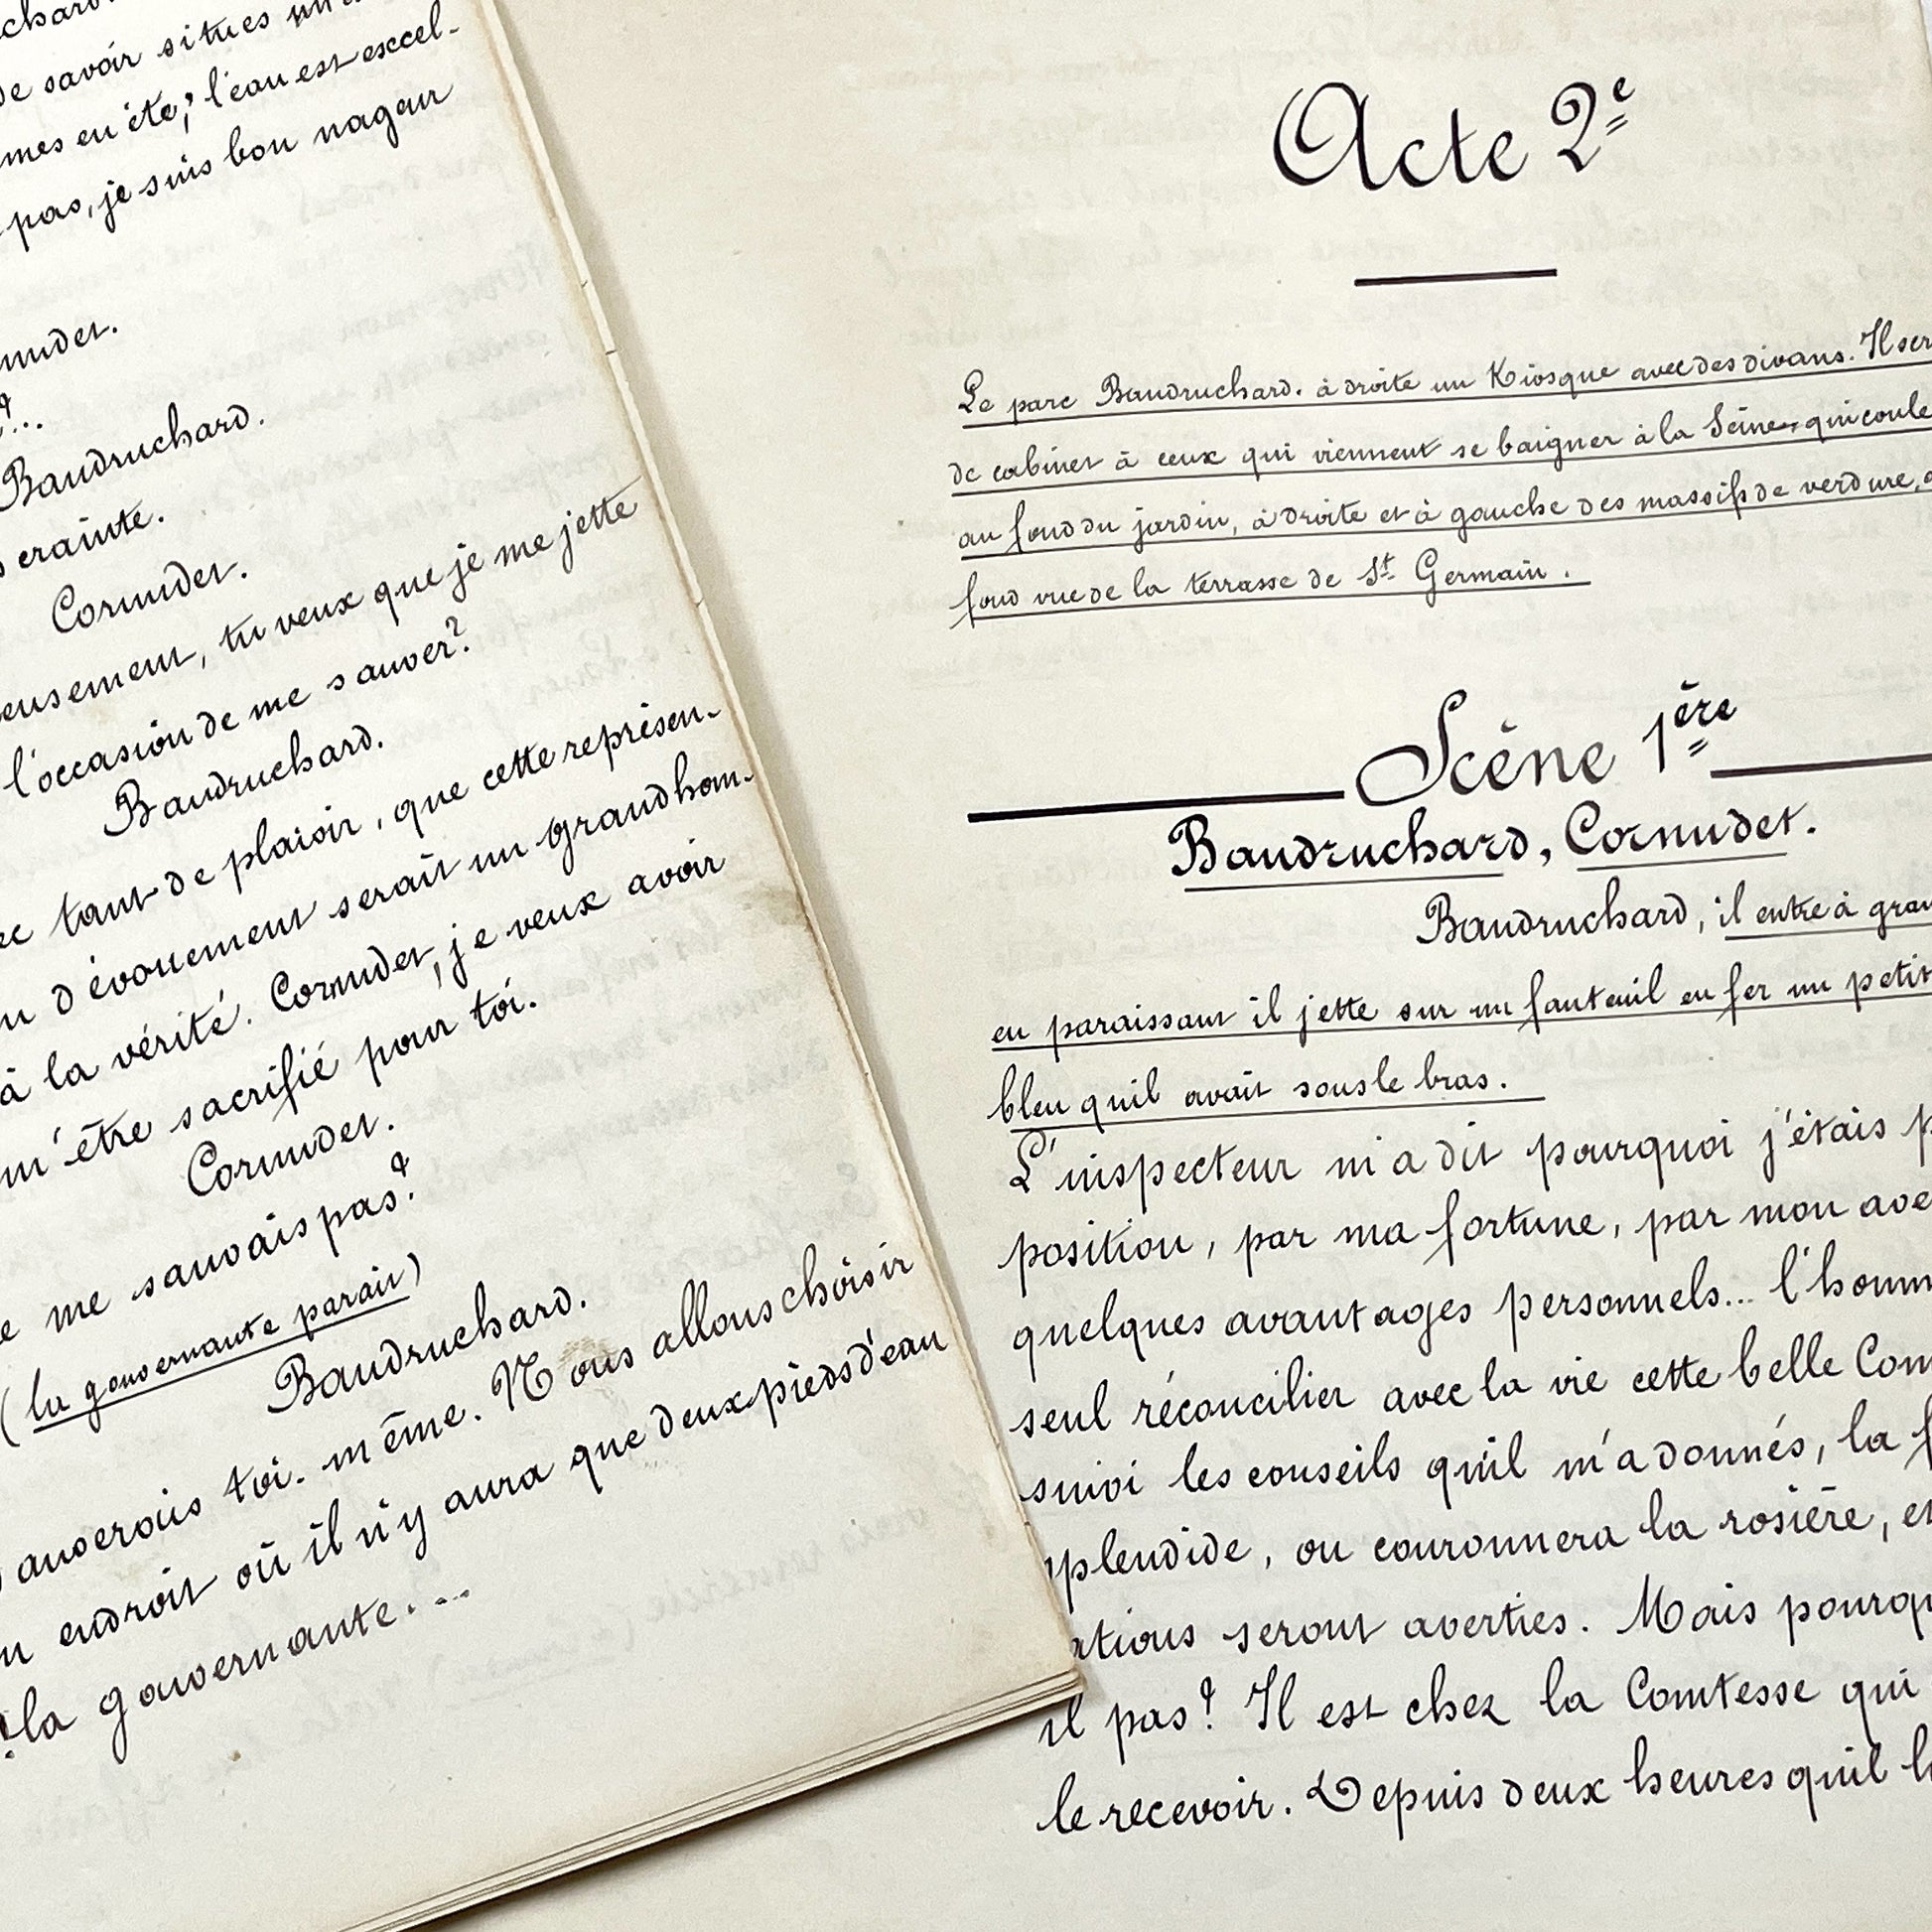 de savoir si tu es
mes en été; l'eau est excel-
pas, je suis bon nageur
Baudruchard.
crainte.
Cornudet.
eusement, tu veux que je me jette
l'occasion de me sauver?
Baudruchard.
tant de plaisir, que cette représen-
dévouement serait un grand hom-
à la vérité. Cornudet, je veux avoir
m'être sacrifié pour toi.
Cornudet.
me sauvais pas?
(la gouvernante parait)
Baudruchard.
sauverais toi-même. Nous allons choisir
endroit où il n'y aura que deux pieds d'eau
la gouvernante....
Acte 2e
Le parc Baudruchard. à droite un Kiosque avec des divans. Il ser
de cabinet à ceux qui viennent se baigner à la Seine, qui coule
au fond du jardin, à droite et à gauche des massifs de verdure,
fond vue de la terrasse de St. Germain.
Scène 1ère
Baudruchard, Cornudet.
Baudruchard, il entre à gran
en paraissant il jette sur un fauteuil en fer un petit
bleu qu'il avait sous le bras.
L'inspecteur m'a dit pourquoi j'étais p
position, par ma fortune, par mon ave
quelques avantages personnels... l'homm
seul réconcilier avec la vie cette belle Com
suivi les conseils qu'il m'a donnés, la f
splendide, on couronnera la rosière, et
ations seront averties. Mais pourqu
il pas? Il est chez la Comtesse qui
le recevoir. Depuis deux heures qu'il l